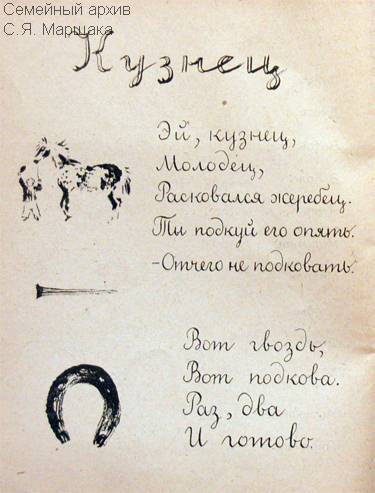 Семейный архив
С.Я. Маршака
Кузнец
Эй, кузнец,
Молодец,
Расковался жеребец.
Ты подкуй его опять.
-Отчего не подковать.
Вот гвоздь,
Вот подкова.
Раз, два
И готово.